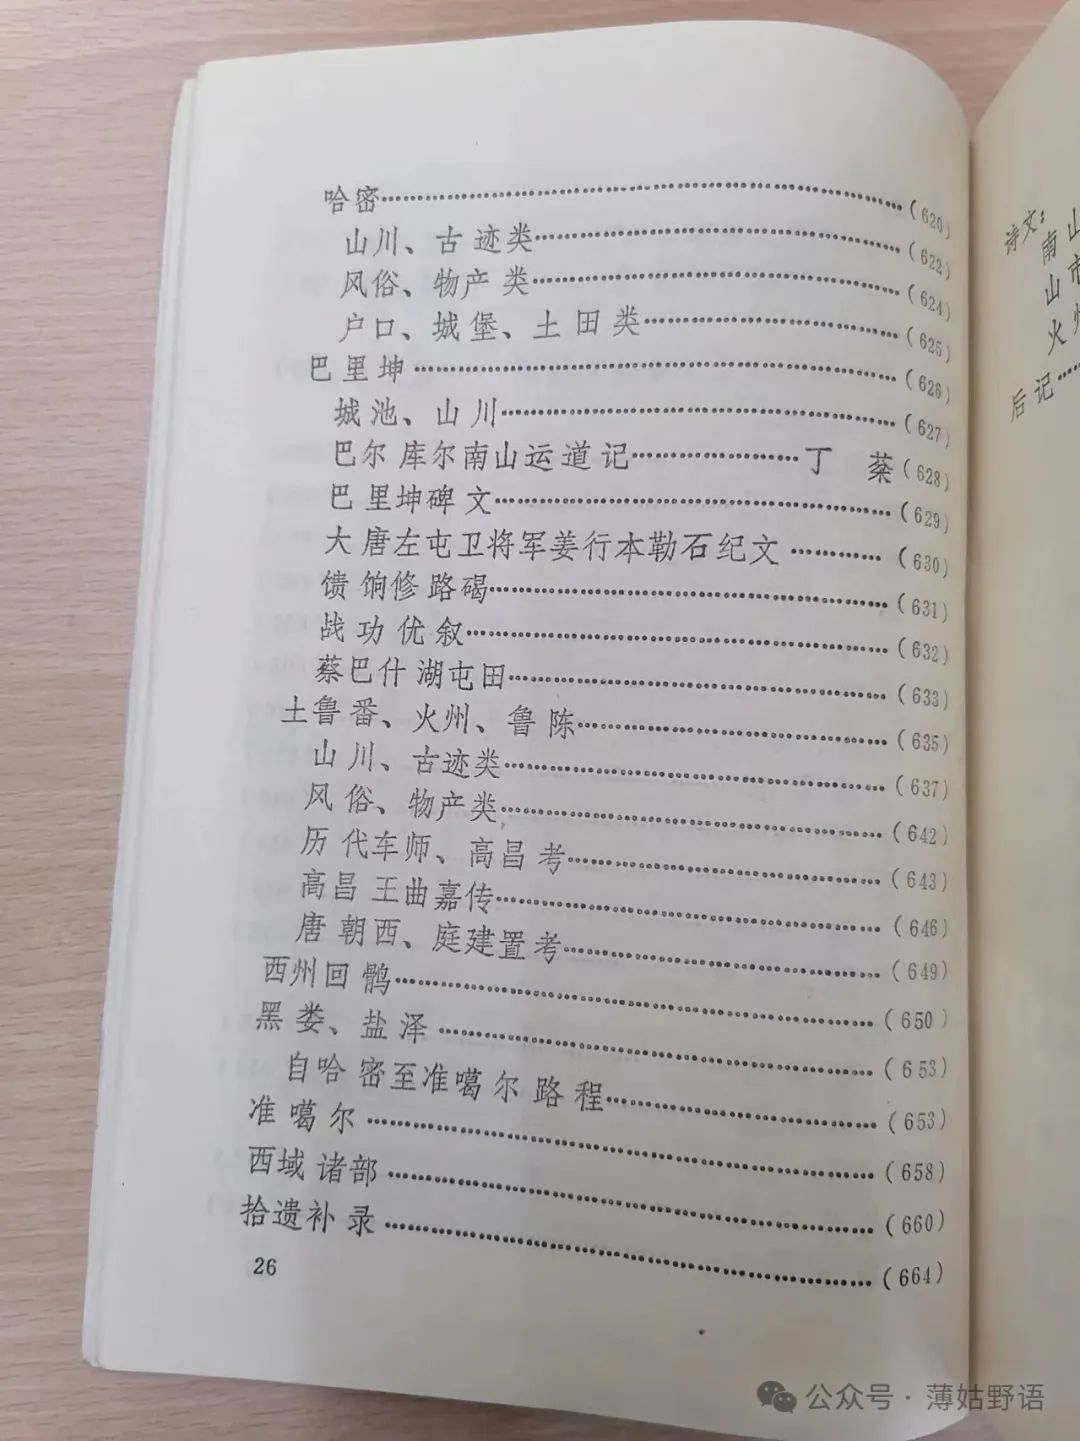 哈密……(620)
山川、古迹类……(622)
风俗、物产类……(624)
户口、城堡、土田类……(625)
巴里坤……(626)
城池、山川……(627)
巴尔库尔南山运道记……丁 蕖(628)
巴里坤碑文……(629)
大唐左屯卫将军姜行本勒石纪文……(630)
馈饷修路碣……(631)
战功优叙……(632)
蔡巴什湖屯田……(633)
土鲁番、火州、鲁陈……(635)
山川、古迹类……(637)
风俗、物产类……(642)
历代车师、高昌考……(643)
高昌王曲嘉传……(646)
唐朝西、庭建置考……(649)
西州回鹘……(650)
黑娄、盐泽……(653)
自哈密至准噶尔路程……(653)
准噶尔……(658)
西域诸部……(660)
拾遗补录……(664)
26
诗文:
南山
山市
火州
后记……
公众号·薄姑野语